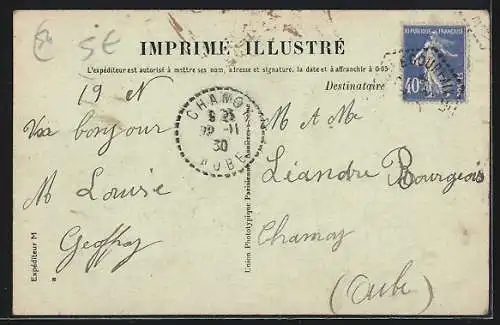 5€
IMPRIMÉ ILLUSTRÉ
L'expéditeur est autorisé à mettre ses nom, adresse et signature, la date et à affranchir à 0.05
Destinataire
REPUBLIQUE FRANÇAISE
40c
POSTES
19
CHAMOY
22 -11
30
AUBE
bonjour
M Louise
Geoffroy
M et Me
Léandre Bourgeois
Chamoy
(Aube)
Expéditeur M
Union Phototypique Parisienne